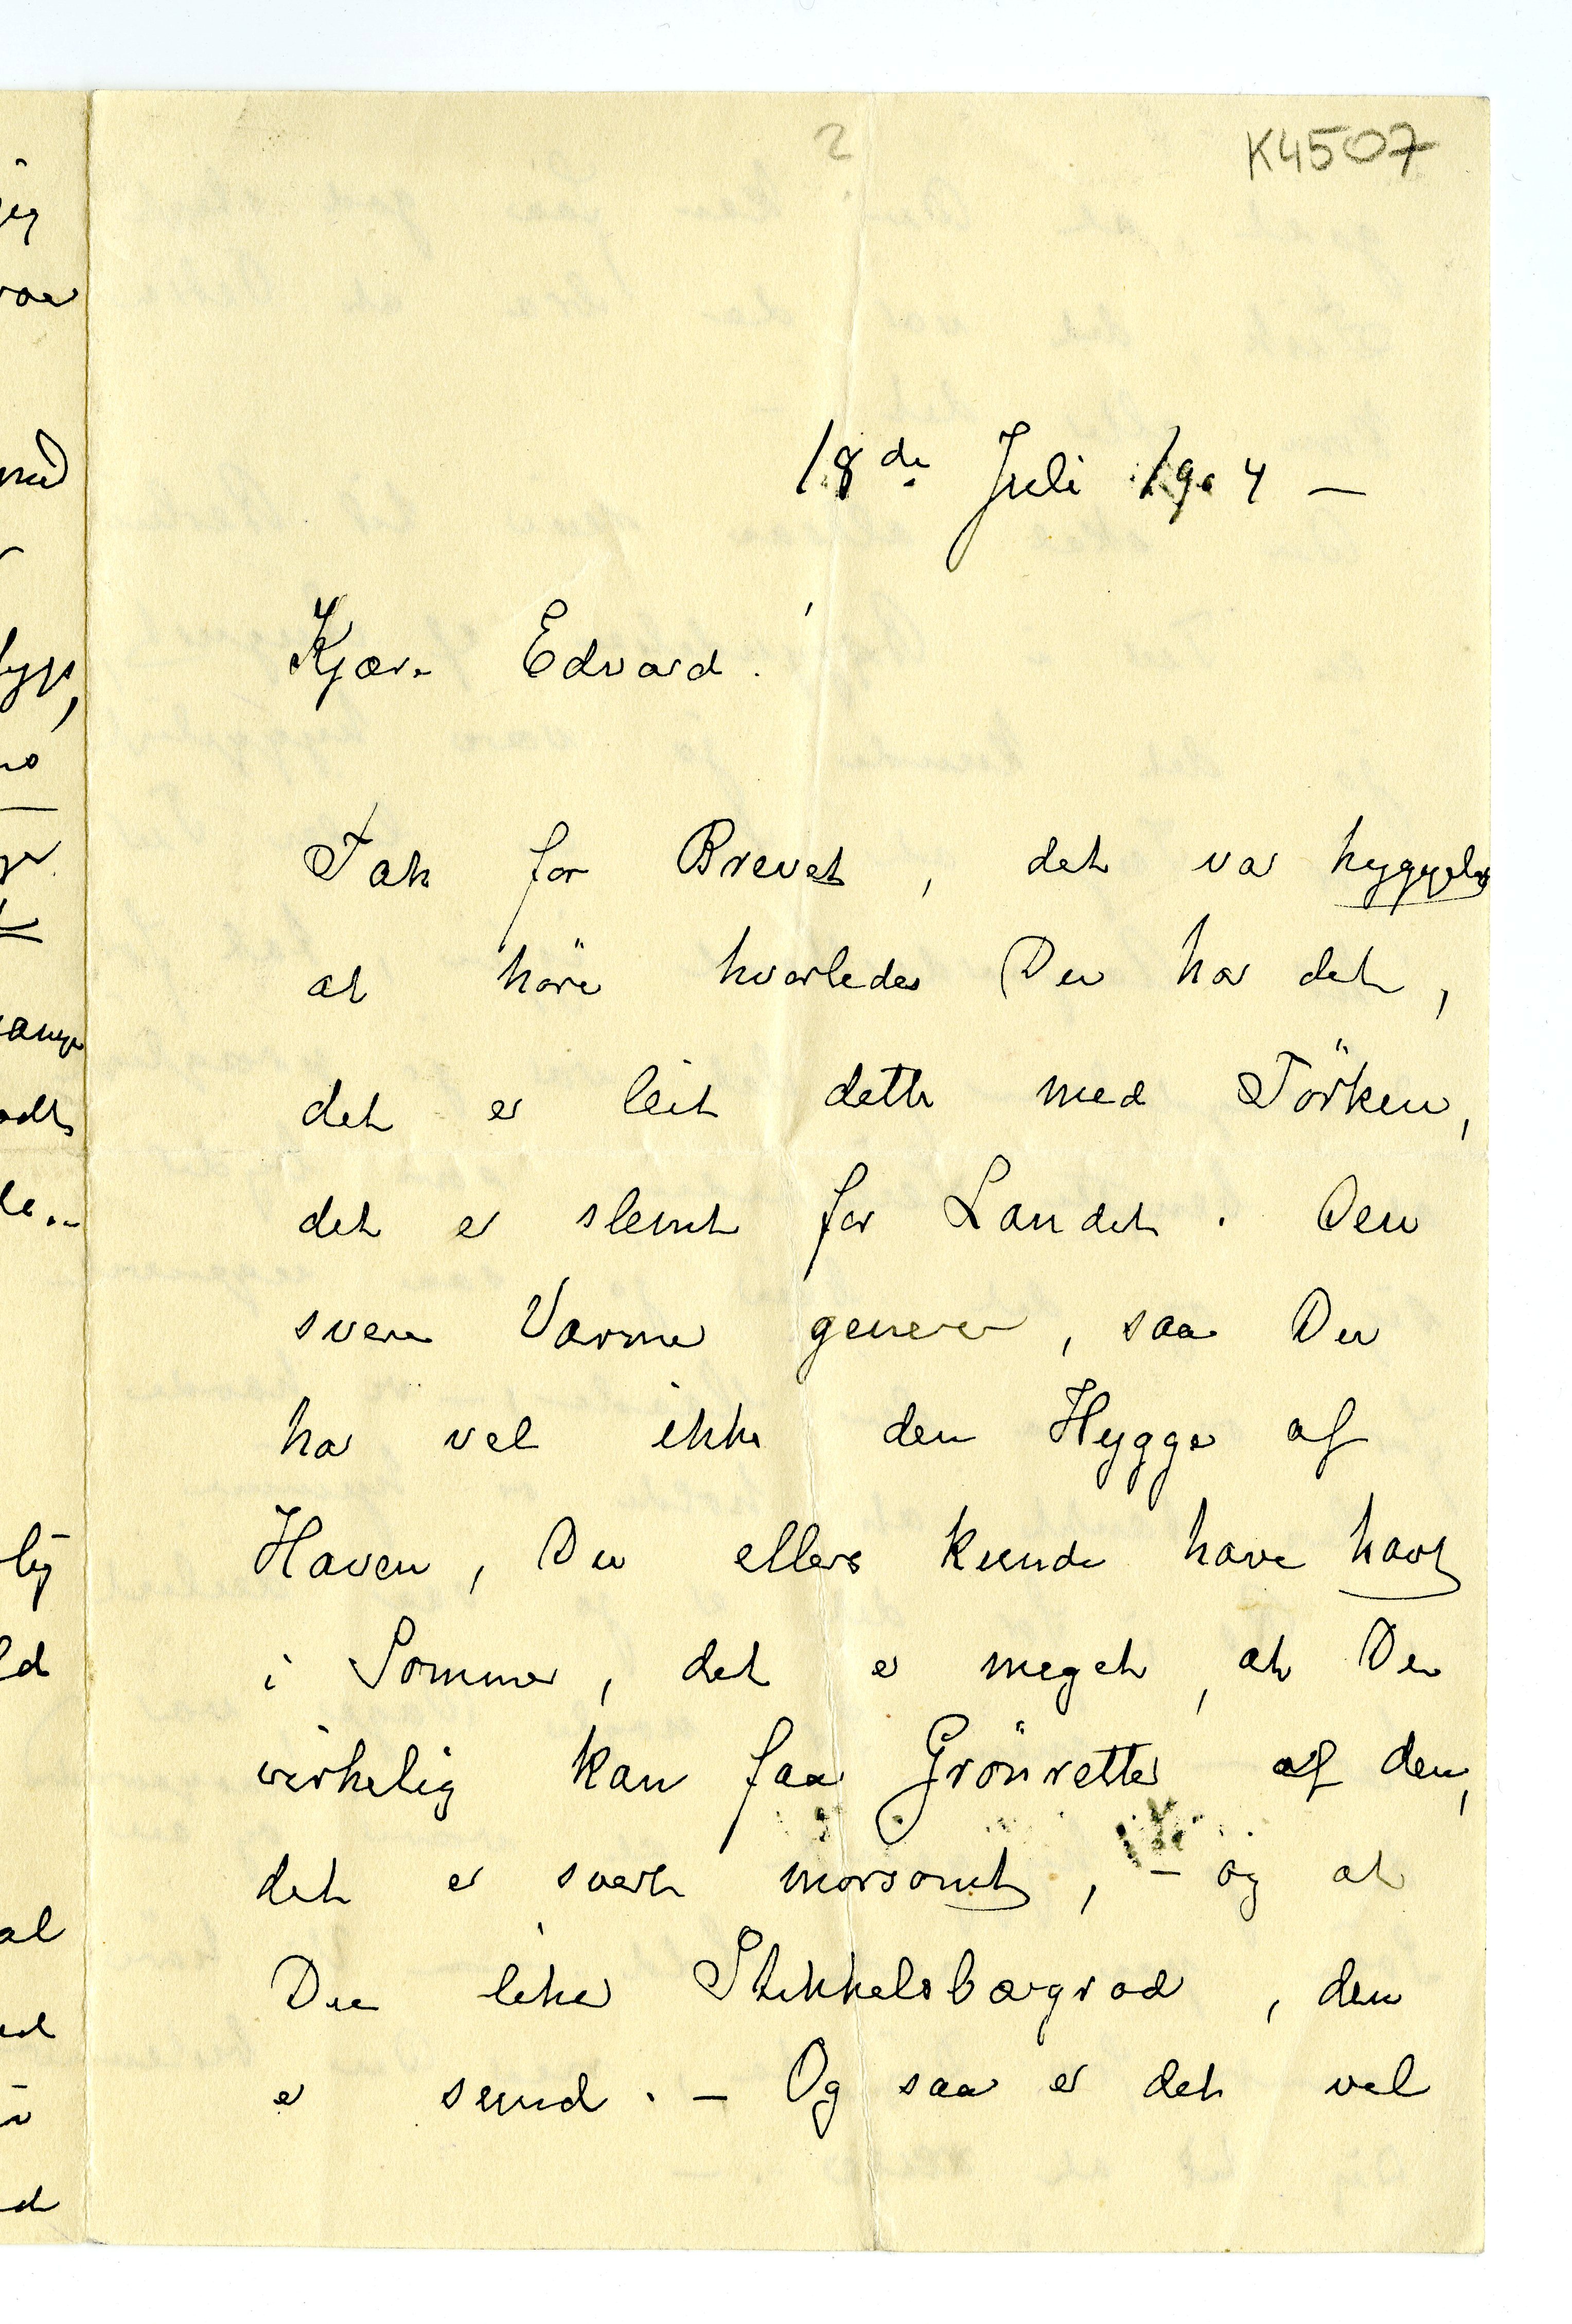 2
K4507
18de Juli 1904 —
Kjære Edvard.
Tak for Brevet, det var hyggelig
at höre hvorledes Du har det,
det er leit dette med Törken,
det er slemt for Landet. Den
svere Varme generer, saa Du
har vel ikke den Hygge af
Haven, Du ellers kunde have havt
i Sommer, det er meget, at Du
virkelig kan faa Grönretter af den,
det er svert morsomt, — og at
Du liker Stikkelsbærgrød, den
er sund. — Og saa er det vel